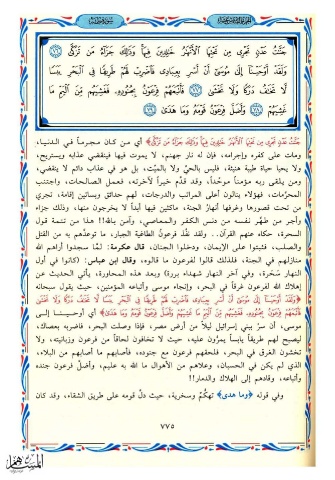 جَنَّٰتُ عَدْنٍ تَجْرِى مِن تَحْتِهَا ٱلْأَنْهَٰرُ خَٰلِدِينَ فِيهَا وَذَٰلِكَ جَزَآءُ مَن تَزَكَّىٰ ٧٦
وَلَقَدْ أَوْحَيْنَآ إِلَىٰ مُوسَىٰٓ أَنْ أَسْرِ بِعِبَادِى فَٱضْرِبْ لَهُمْ طَرِيقًا فِى ٱلْبَحْرِ يَبَسًا
لَّا تَخَٰفُ دَرَكًا وَلَا تَخْشَىٰ ٧٧ فَأَتْبَعَهُمْ فِرْعَوْنُ بِجُنُودِهِۦ فَغَشِيَهُم مِّنَ ٱلْيَمِّ مَا
غَشِيَهُمْ ٧٨ وَأَضَلَّ فِرْعَوْنُ قَوْمَهُۥ وَمَا هَدَىٰ ٧٩
جَنَّٰتُ عَدْنٍ تَجْرِى مِن تَحْتِهَا ٱلْأَنْهَٰرُ خَٰلِدِينَ فِيهَا وَذَٰلِكَ جَزَآءُ مَن تَزَكَّىٰ﴾ أي من كان مجرماً في الدنيا،
ومات على كفره وإجرامه، فإن له نار جهنم، لا يموت فيها فينقضي عذابه ويستريح،
ولا يحيا حياة طيبة هنيئة، فليس بالحيّ ولا بالميّت، بل هو في عذاب دائم لا ينقضي،
ومن يلقى ربه مؤمناً موحّداً، وقد قدّم خيراً لآخرته، فعمل الصالحات، واجتنب
المحرّمات، فهؤلاء ينالون أعلى المراتب والدرجات، لهم حدائق وبساتين إقامة، تجري
من تحت قصورها وغرفها أنهار الجنة، ماكثين فيها أبداً لا يخرجون منها، وذلك جزاء
وأجر من طهّر نفسه من دنس الكفر والمعاصي، وآمن بالله!! هذا من تتمة قول
السحرة، حكاه عنهم القرآن.. ولقد نفّذ فرعونُ الطاغية الجبار، ما توعّدهم به من القتل
والصلب، فثبتوا على الإيمان، ودخلوا الجنان، قال عكرمة: لمّا سجدوا أراهم الله
منازلهم في الجنة، فلذلك قالوا لفرعون ما قالوه، وقال ابن عباس: (كانوا في أول
النهار سَحَرة، وفي آخر النهار شهداء بررة) وبعد هذه المحاورة، يأتي الحديث عن
إهلاك الله لفرعون غرقاً في البحر، وإنجاء موسى وأتباعه المؤمنين، حيث يقول سبحانه
﴿وَلَقَدْ أَوْحَيْنَآ إِلَىٰ مُوسَىٰٓ أَنْ أَسْرِ بِعِبَادِى فَٱضْرِبْ لَهُمْ طَرِيقًا فِى ٱلْبَحْرِ يَبَسًا لَّا تَخَٰفُ دَرَكًا وَلَا تَخْشَىٰ
فَأَتْبَعَهُمْ فِرْعَوْنُ بِجُنُودِهِۦ فَغَشِيَهُم مِّنَ ٱلْيَمِّ مَا غَشِيَهُمْ وَأَضَلَّ فِرْعَوْنُ قَوْمَهُۥ وَمَا هَدَىٰ﴾ أي أوحينا إلى
موسى، أن سرْ ببني إسرائيل ليلاً من أرض مصر، فإذا وصلت البحر، فاضربه بعصاك،
ليصبح لهم طريقاً يابساً يمرّون عليه، حيث لا تخافون لحاقاً من فرعون وزبانيته، ولا
تخشون الغرق في البحر، فلحقهم فرعون مع جنوده، فأصابهم ما أصابهم من البلاء،
الذي لم يكن في الحسبان، وعلاهم من الأهوال ما الله به عليم، وأضلّ فرعون جنده
وأتباعه، وقادهم إلى الهلاك والدمار!!
وفي قوله ﴿وما هدى﴾ تهكّم وسخرية، حيث دلّ قومه على طريق الشقاء، وقد كان
٧٧٥